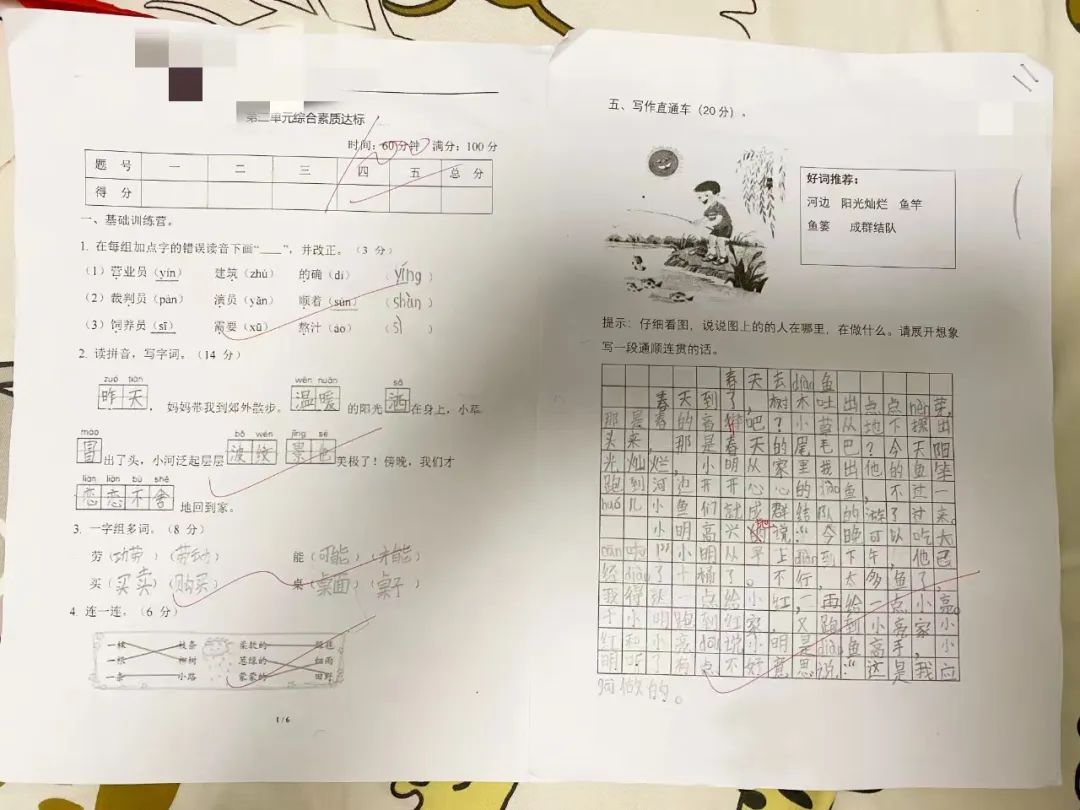 第二单元综合素质达标
时间：60分钟 满分：100分
题 号 一 二 三 四 五 总 分
得 分
一、基础训练营。
1. 在每组加点字的错误读音下画“____”，并改正。（3 分）
（1）营业员（yín） 建筑（zhù） 的确（dí） （yíng）
（2）裁判员（pàn） 演员（yǎn） 顺着（sùn） （shùn）
（3）饲养员（sī） 需要（xū） 熬汁（áo） （sì）
2. 读拼音，写字词。（14 分）
zuó tiān wēn nuǎn sǎ
昨天， 妈妈带我到郊外散步。温暖的阳光洒在身上，小草
mào bō wén jǐng sè
冒出了头，小河泛起层层波纹 景色美极了！傍晚，我们才
liàn liàn bù shě
恋恋不舍地回到家。
3. 一字组多词。（8 分）
劳（功劳）（劳动） 能（可能）（才能）
买（买卖）（购买） 桌（桌面）（桌子）
4. 连一连。（6 分）
一棵 枝条 柔软的
一根 柳树 葱绿的 细雨
一条 小路 蒙蒙的 田野
1 / 6
五、写作直通车（20 分）。
好词推荐：
河边 阳光灿烂 鱼竿
鱼篓 成群结队
提示：仔细看图，说说图上的的人在哪里，在做什么。请展开想象
写一段通顺连贯的话。
春天去diào鱼
春天到了，树木吐出点点nèn芽，
那是春的音符吧？小草从地下探出
头来，那是春天的眉毛巴？今天阳
光灿烂，小明从家里找出他的鱼竿
跑到河边开开心心的diào鱼，不过一
huǒ儿小鱼们就成群结队的游了过来。
小明高兴地说：“今晚可以吃大
cān啦！”小明从早上diào到下午，他已
经diào了十桶了。不行，太多鱼了
我得送一点给小红，再给一点小亮。
于小明跑到红家，又跑到小亮家小
红和小亮都说小明是diào鱼高手，小
明听了有点不好意思说：“这是我应
该做的。